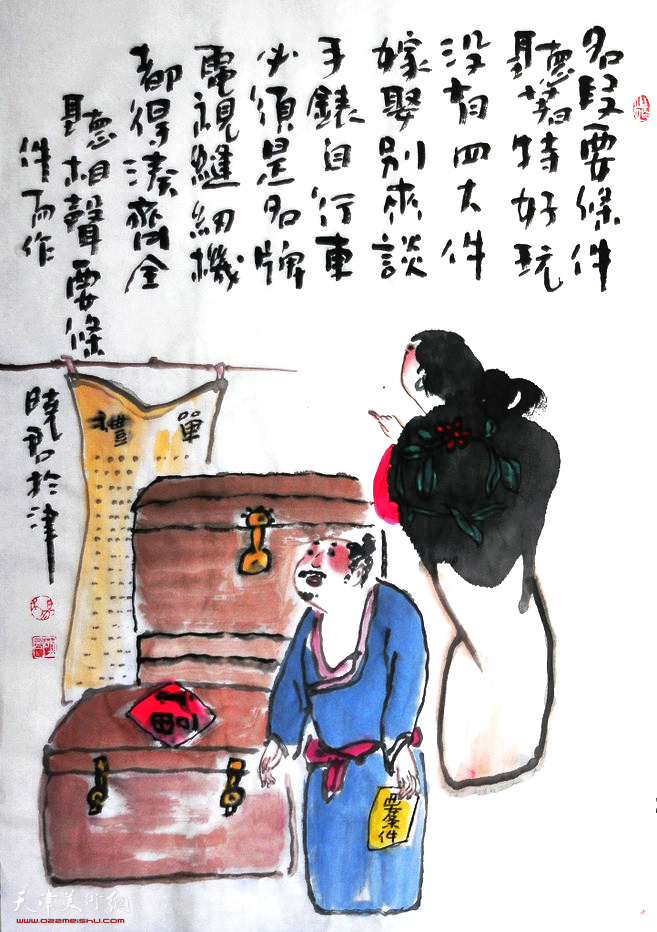 名段要條件
聽着特好玩
没有四大件
嫁娶别來談
手錶自行車
必須是名牌
電視縫紉機
都得湊齊全
聽相聲要條
件而作
曉君於津
禮單
要条件
天津美術網
www.022meishu.com